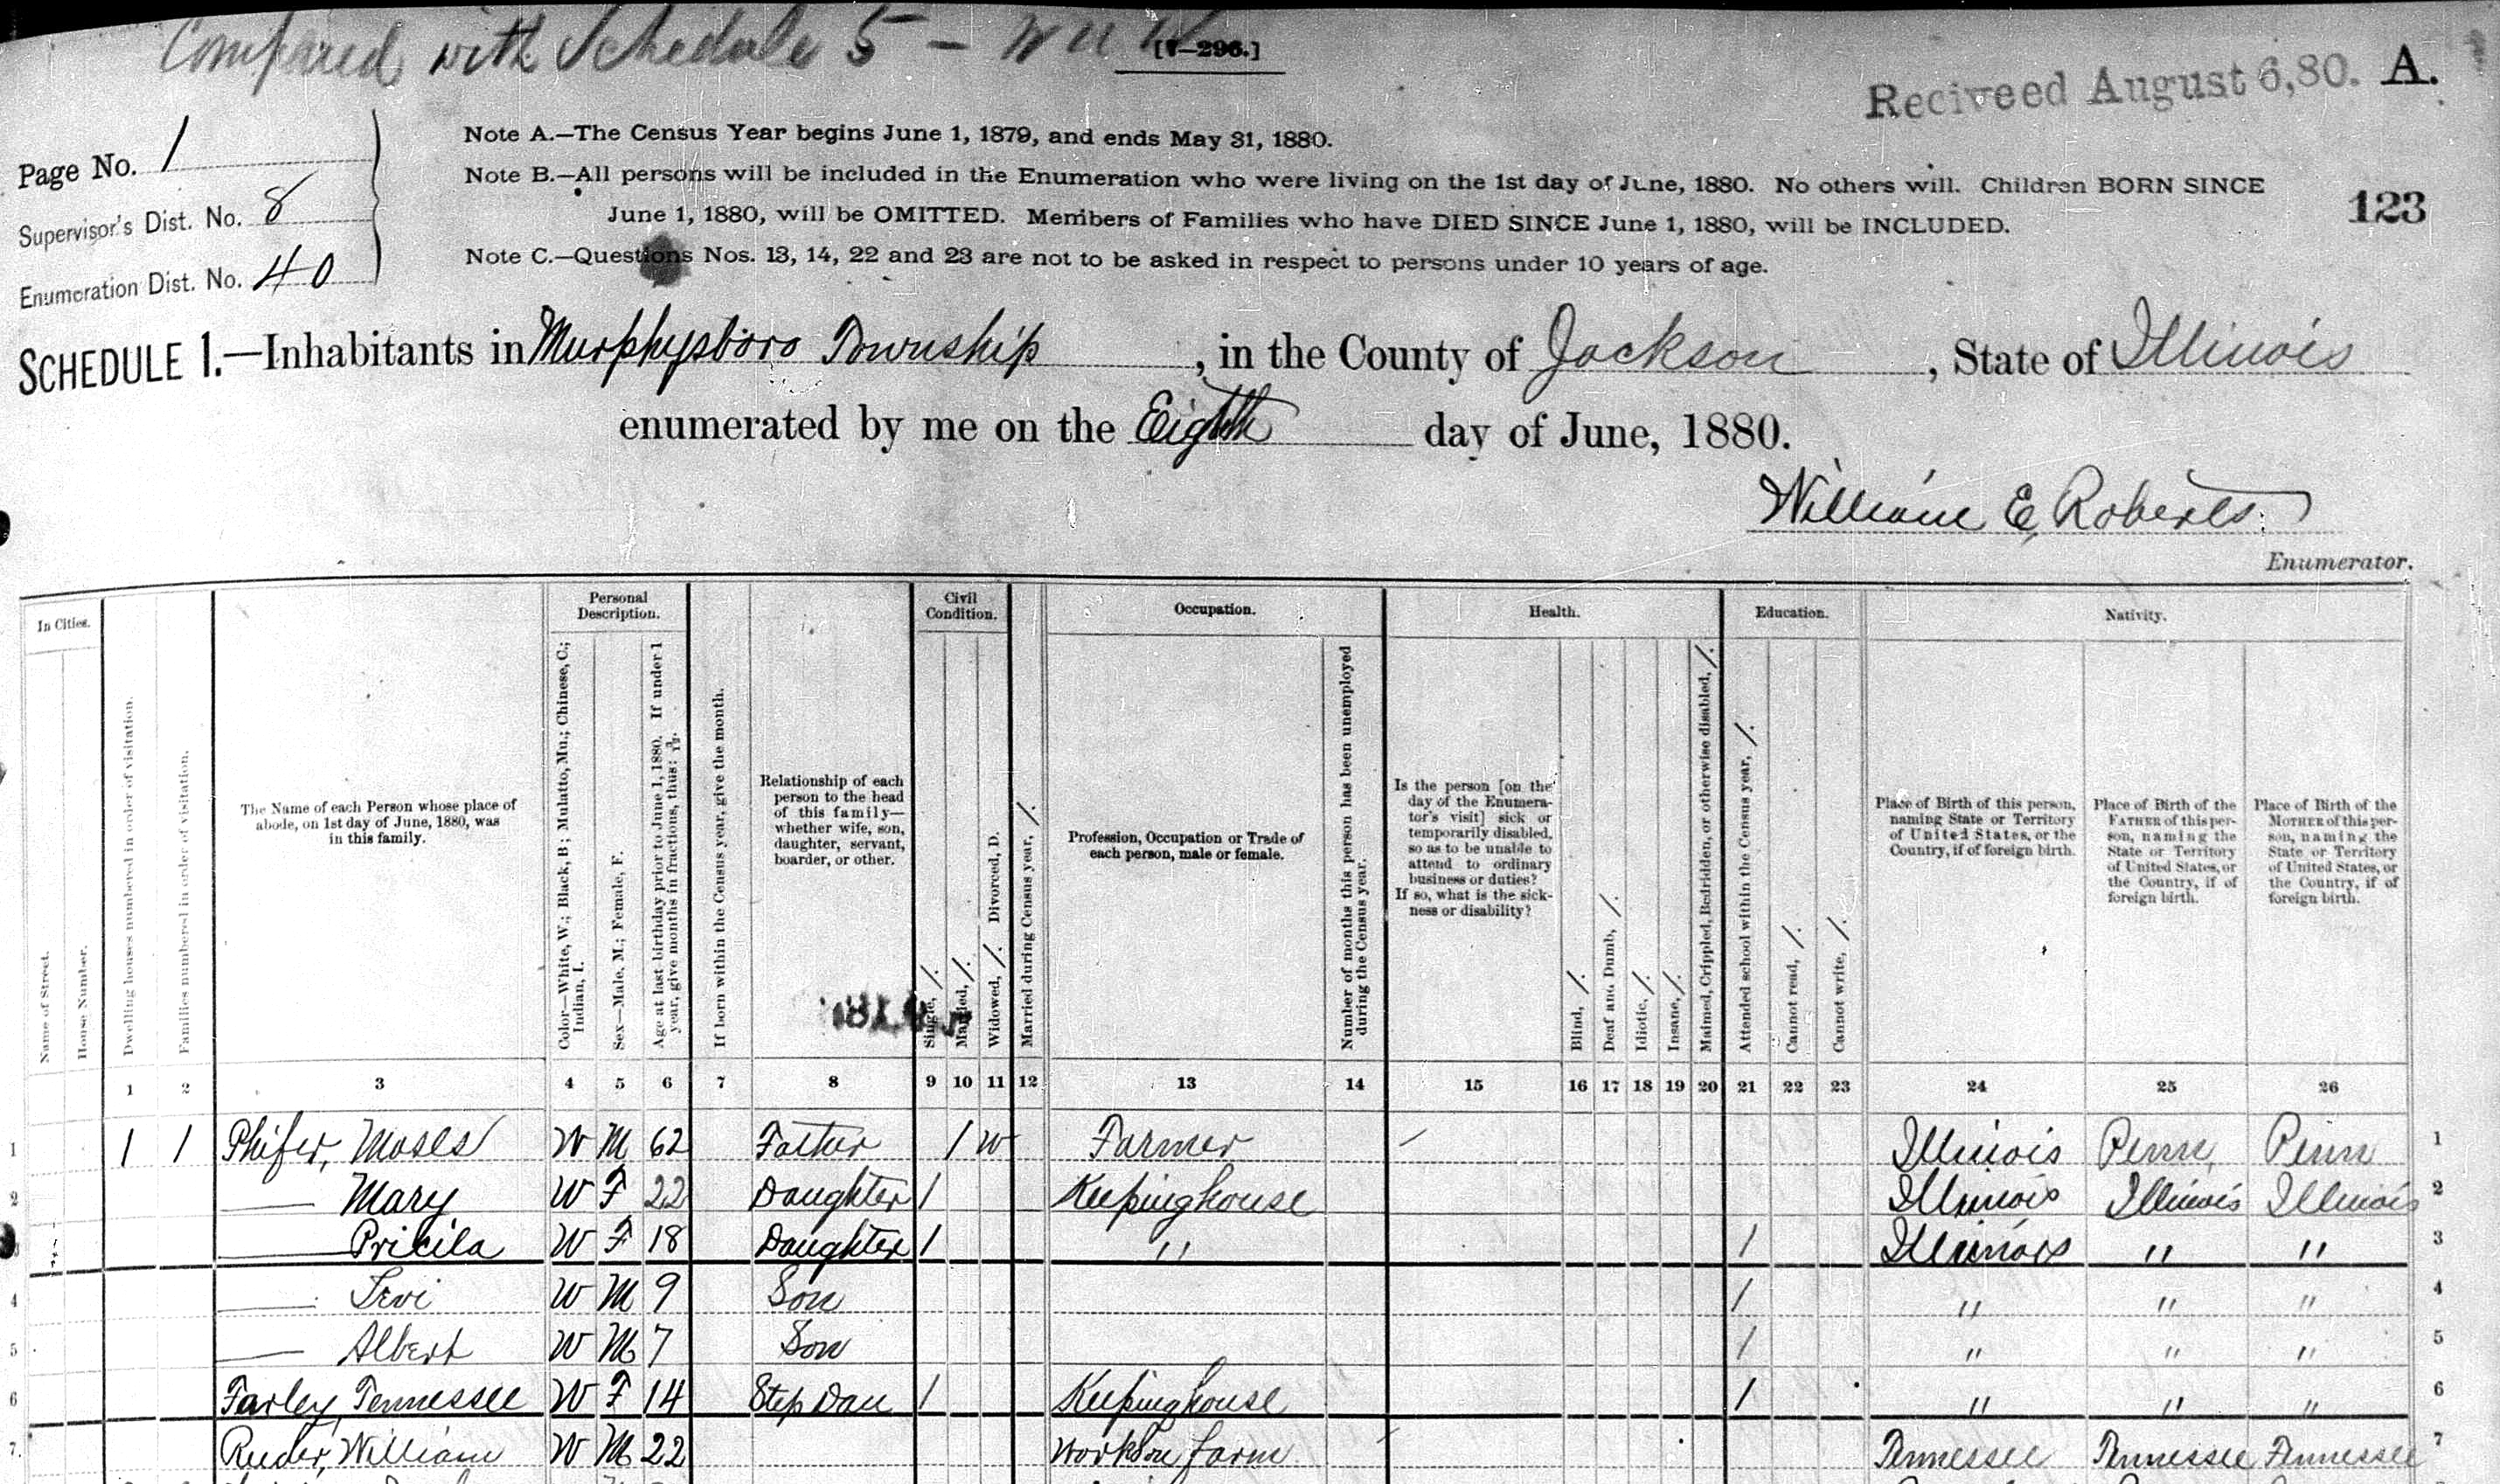 Compared with Schedule 5 –
[7—296.]
Reciveed August 6, 80. A.
Page No. 1
Supervisor's Dist. No. 8
Enumeration Dist. No. 40
Note A.—The Census Year begins June 1, 1879, and ends May 31, 1880.
Note B.—All persons will be included in the Enumeration who were living on the 1st day of June, 1880. No others will. Children BORN SINCE
June 1, 1880, will be OMITTED. Members of Families who have DIED SINCE June 1, 1880, will be INCLUDED.
Note C.—Questions Nos. 13, 14, 22 and 23 are not to be asked in respect to persons under 10 years of age.
123
SCHEDULE 1.—Inhabitants in Murphysboro Township, in the County of Jackson, State of Illinois
enumerated by me on the Eighth day of June, 1880.
William E. Roberts
Enumerator.
In Cities.
Name of Street.
House Number.
Dwelling houses numbered in order of visitation.
Families numbered in order of visitation.
The Name of each Person whose place of
abode, on 1st day of June, 1880, was
in this family.
Personal
Description.
Color—White, W.; Black, B; Mulatto, Mu.; Chinese, C.;
Indian, I.
Sex—Male, M.; Female, F.
Age at last birthday prior to June 1, 1880. If under 1
year, give months in fractions, thus: 3/12.
If born within the Census year, give the month.
Relationship of each
person to the head
of this family—
whether wife, son,
daughter, servant,
boarder, or other.
Civil
Condition.
Single, /.
Married, /.
Widowed, /. Divorced, D.
Married during Census year, /.
Occupation.
Profession, Occupation or Trade of
each person, male or female.
Number of months this person has been unemployed
during the Census year.
Health.
Is the person [on the
day of the Enumera-
tor's visit] sick or
temporarily disabled,
so as to be unable to
attend to ordinary
business or duties?
If so, what is the sick-
ness or disability?
Blind, /.
Deaf and Dumb, /.
Idiotic, /.
Insane, /.
Maimed, Crippled, Bedridden, or otherwise disabled, /.
Education.
Attended school within the Census year, /.
Cannot read, /.
Cannot write, /.
Nativity.
Place of Birth of this person,
naming State or Territory
of United States, or the
Country, if of foreign birth.
Place of Birth of the
FATHER of this per-
son, naming the
State or Territory
of United States, or
the Country, if of
foreign birth.
Place of Birth of the
MOTHER of this per-
son, naming the
State or Territory
of United States, or
the Country, if of
foreign birth.
1 2 3 4 5 6 7 8 9 10 11 12 13 14 15 16 17 18 19 20 21 22 23 24 25 26
1 1 1 Phifer, Moses W M 62 Father / W Farmer Illinois Penn. Penn 1
2 — Mary W F 22 Daughter / Keeping house Illinois Illinois Illinois 2
— Pricila W F 18 Daughter / " / Illinois " " 3
4 — Levi W M 9 Son / " " " 4
5 — Albert W M 7 Son / " " " 5
6 Farley, Tennessee W F 14 Step Dau / Keeping house / " " " 6
7. Reeder, William W M 22 Works on farm Tennessee Tennessee Tennessee 7